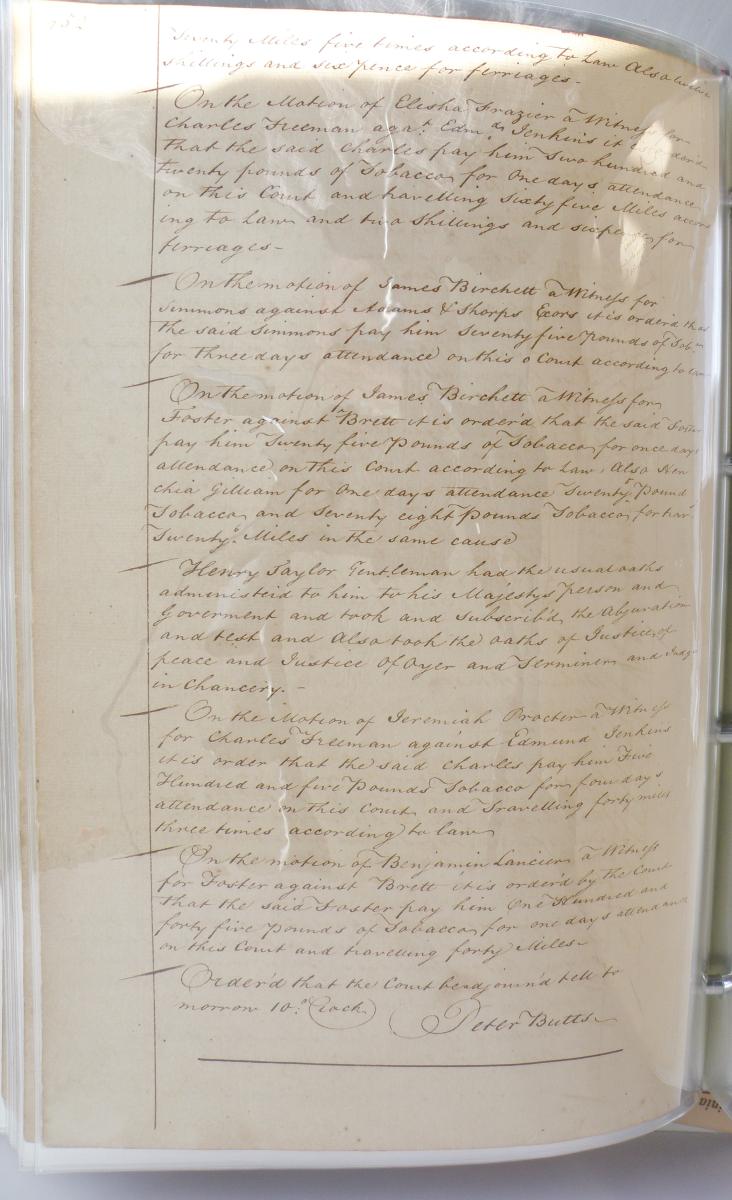 152
Twenty Miles five times according to Law Also
shillings and six pence for ferriages -
On the Motion of Elisha Frazier a Witness for
Charles Freeman agat. Edmd. Jenkins it is order'd
that the said Charles pay him Two hundred and
twenty pounds of Tobacco for One days attendance
on this Court and travelling Sixty five Miles accord
ing to Law and two Shillings and sixpence for
ferriages -
On the motion of James Birchett a Witness for
Simmons against Adams & Thorps Exors it is order'd that
the said Simmons pay him Seventy five Pounds of Tobo.
for three days attendance on this o Court according to Law
On the motion of James Birchett a Witness for
Foster against Brett it is order'd that the said Foster
pay him Twenty five Pounds of Tobacco for once days
attendance on this Court according to Law, Also Hen
chia Gilliam for One days attendance Twenty Pound
Tobacco and Seventy eight Pounds Tobacco for trav
Twenty Miles in the same cause
Henry Taylor Gentleman had the usual oaths
administeid to him to his Majestys Person and
Goverment and took and subscrib'd the Abjuration
and test and Also took the oaths of Justice of
peace and Justice of Oyer and Terminer and Judge
in Chancery. -
On the Motion of Jeremiah Procter a Witness
for Charles Freeman against Edmund Jenkins
it is order that the said Charles pay him Five
Hundred and five Pounds Tobacco for four days
attendance on this Court and Travelling forty miles
three times according to law
On the motion of Benjamin Lancier a Witness
for Foster against Brett it is order'd by the Court
that the said Foster pay him One Hundred and
forty five Pounds of Tobacco for one days attendance
on this Court and travelling forty Miles -
Order'd that the Court be adjourn'd till to
morrow 10 o Clock
Peter Butts